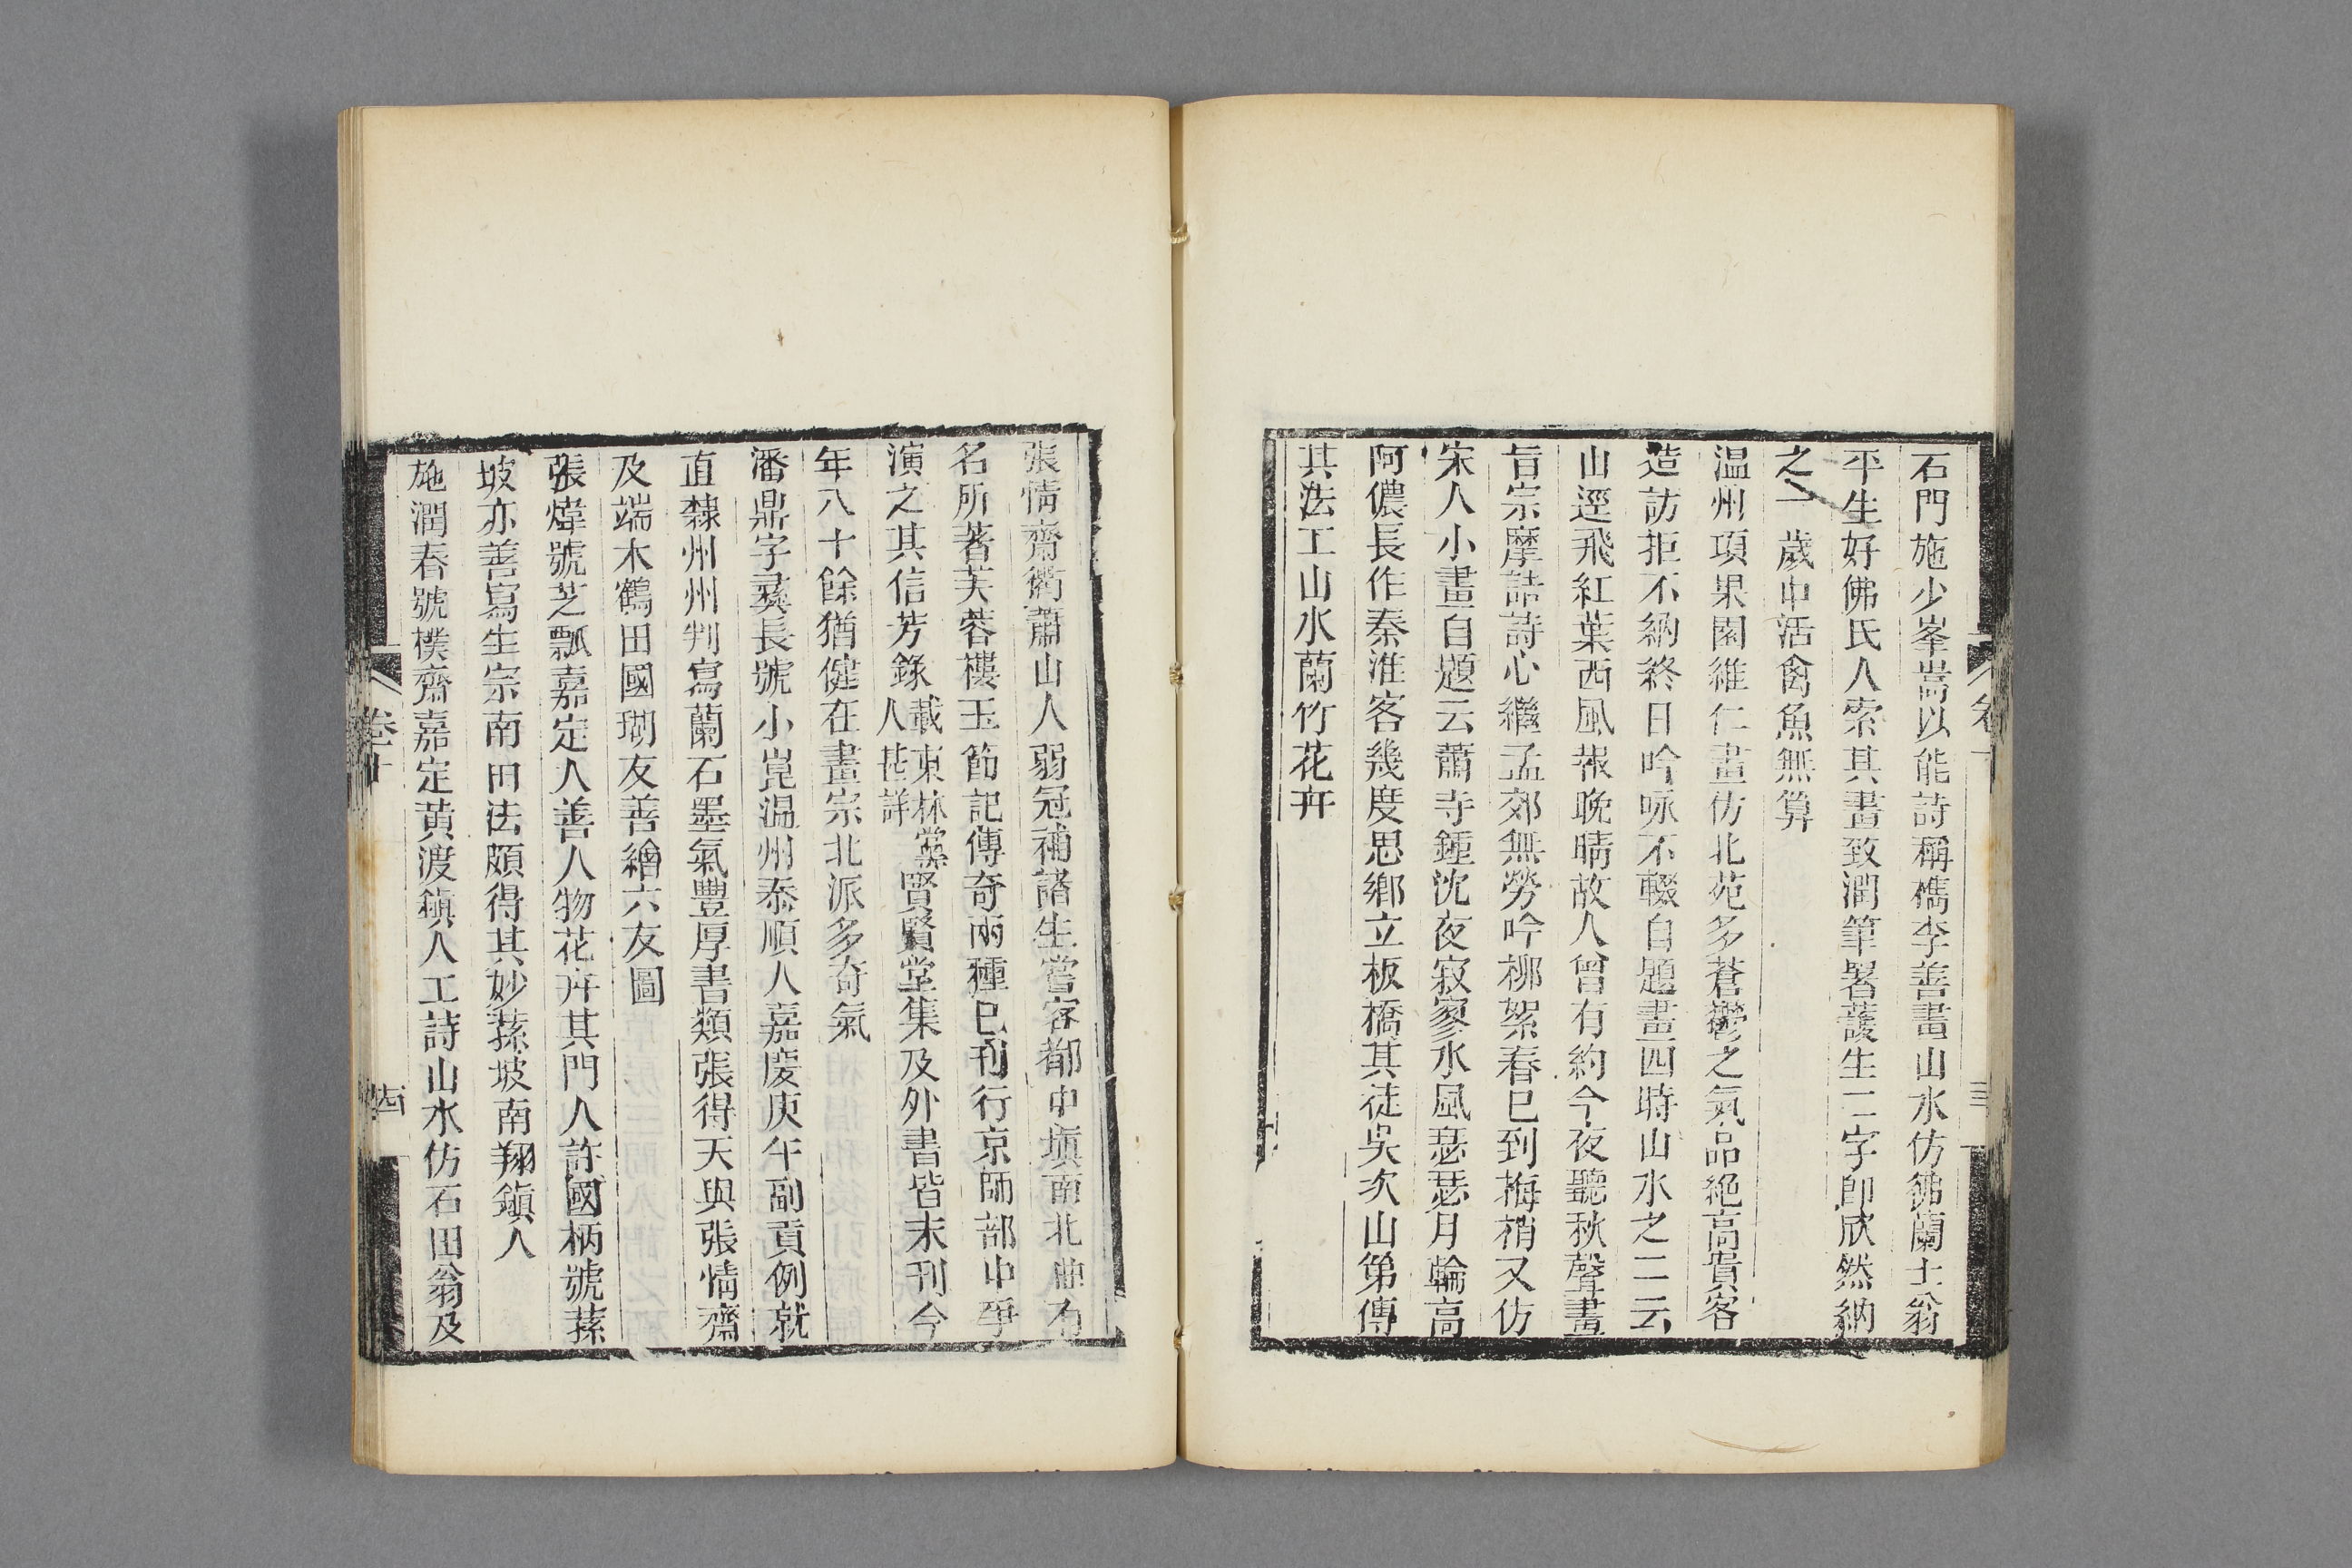 石門施少峯嵩以能詩稱檇李善畫山水仿鐵蘭士翁
平生好佛氏人索其畫致潤筆署護生二字卽欣然納
之一歲中活禽魚無算
温州項果園維仁畫仿北苑多蒼鬱之氣品絶高貴客
造訪拒不納終日吟咏不輟自題畫四時山水之二云
山逕飛紅葉西風報晩晴故人曾有約今夜聽秋聲畫
旨宗摩詰詩心繼孟郊無勞吟栁絮春已到梅梢又仿
宋人小畫自題云蕭寺鍾沈夜寂寥水風瑟瑟月輪高
阿儂長作秦淮客幾度思鄉立板橋其徒吳次山第傳
其法工山水蘭竹花卉
張情齋衢蕭山人弱冠補諸生嘗客都中塡南北曲有
名所著芙蓉樓玉節記傳奇兩種已刊行京師部中爭
演之其信芳錄載東林黨人甚詳賢賢堂集及外書皆未刊今
年八十餘猶健在畫宗北派多奇氣
潘鼎字彞長號小崑温州泰順人嘉慶庚午副貢例就
直隸州州判寫蘭石墨氣豐厚書類張得天與張情齋
及端木鶴田國瑚友善繪六友圖
張煒號芝瓢嘉定人善人物花卉其門人許國柄號蓀
坡亦善寫生宗南田法頗得其妙蓀坡南翔鎭人
施潤春號樸齋嘉定黄渡鎭人工詩山水仿石田翁及
卷十